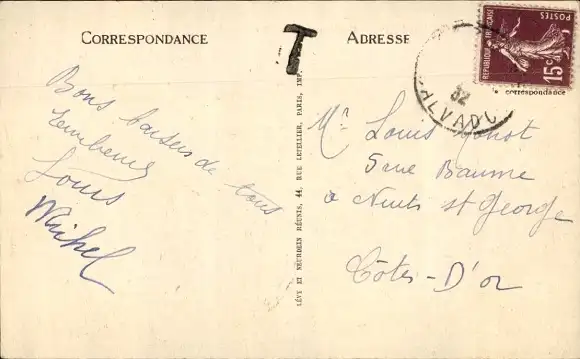 CORRESPONDANCE
T
ADRESSE
POSTES
REPUBLIQUE FRANÇAISE
15c
32
CALVADOS
correspondance
Bons baisers de tous
Louis
Michel
LÉVY ET NEURDEIN RÉUNIS, 44, RUE LETELLIER, PARIS, IMP.
Mr Louis
5 rue Baume
à Nuits st George
Côtes-D'or